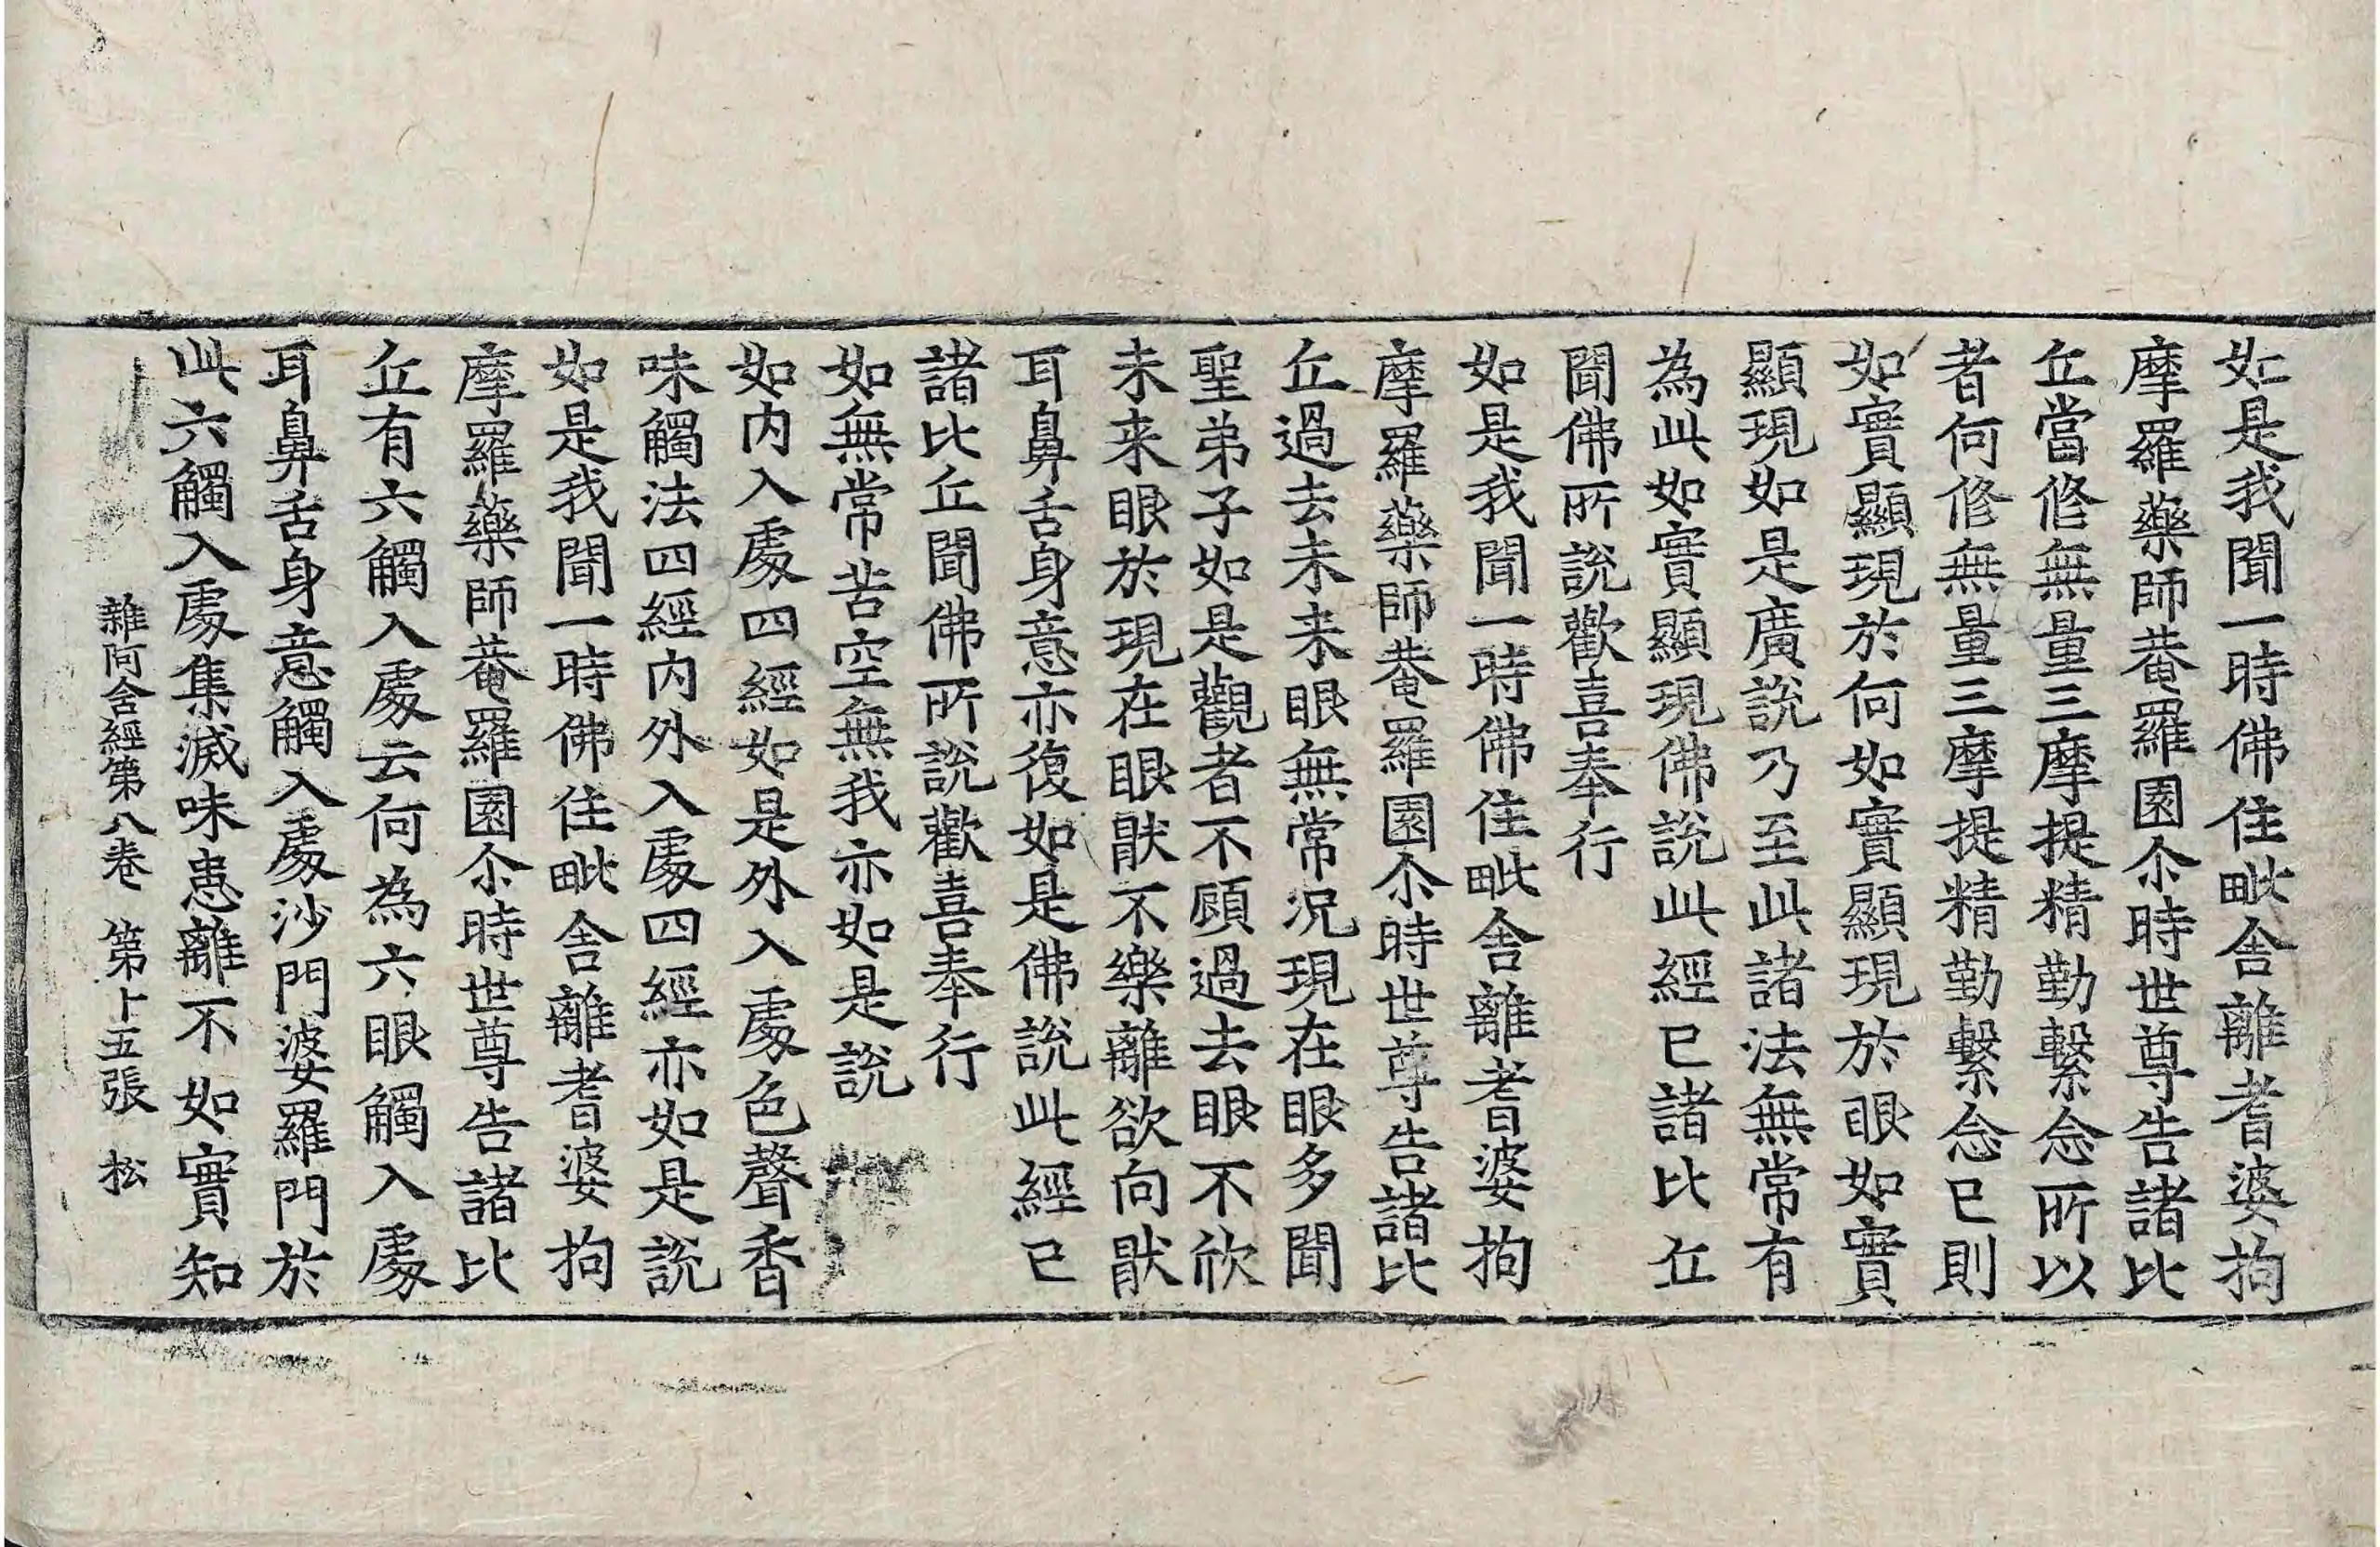 如是我聞一時佛住毗舍離耆婆拘
摩羅藥師菴羅園尒時世尊告諸比
丘當修無量三摩提精勤繫念所以
者何修無量三摩提精勤繫念已則
如實顯現於何如實顯現於眼如實
顯現如是廣說乃至此諸法無常有
為此如實顯現佛說此經已諸比丘
聞佛所說歡喜奉行
如是我聞一時佛住毗舍離耆婆拘
摩羅藥師菴羅園尒時世尊告諸比
丘過去未来眼無常況現在眼多聞
聖弟子如是觀者不顧過去眼不欣
未来眼於現在眼猒不樂離欲向猒
耳鼻舌身意亦復如是佛說此經已
諸比丘聞佛所說歡喜奉行
如無常苦空無我亦如是說
如内入處四經如是外入處色聲香
味觸法四經内外入處四經亦如是說
如是我聞一時佛住毗舍離耆婆拘
摩羅藥師菴羅園尒時世尊告諸比
丘有六觸入處云何為六眼觸入處
耳鼻舌身意觸入處沙門婆羅門於
此六觸入處集滅味患離不如實知
雜阿含經第八卷 第十五張 松